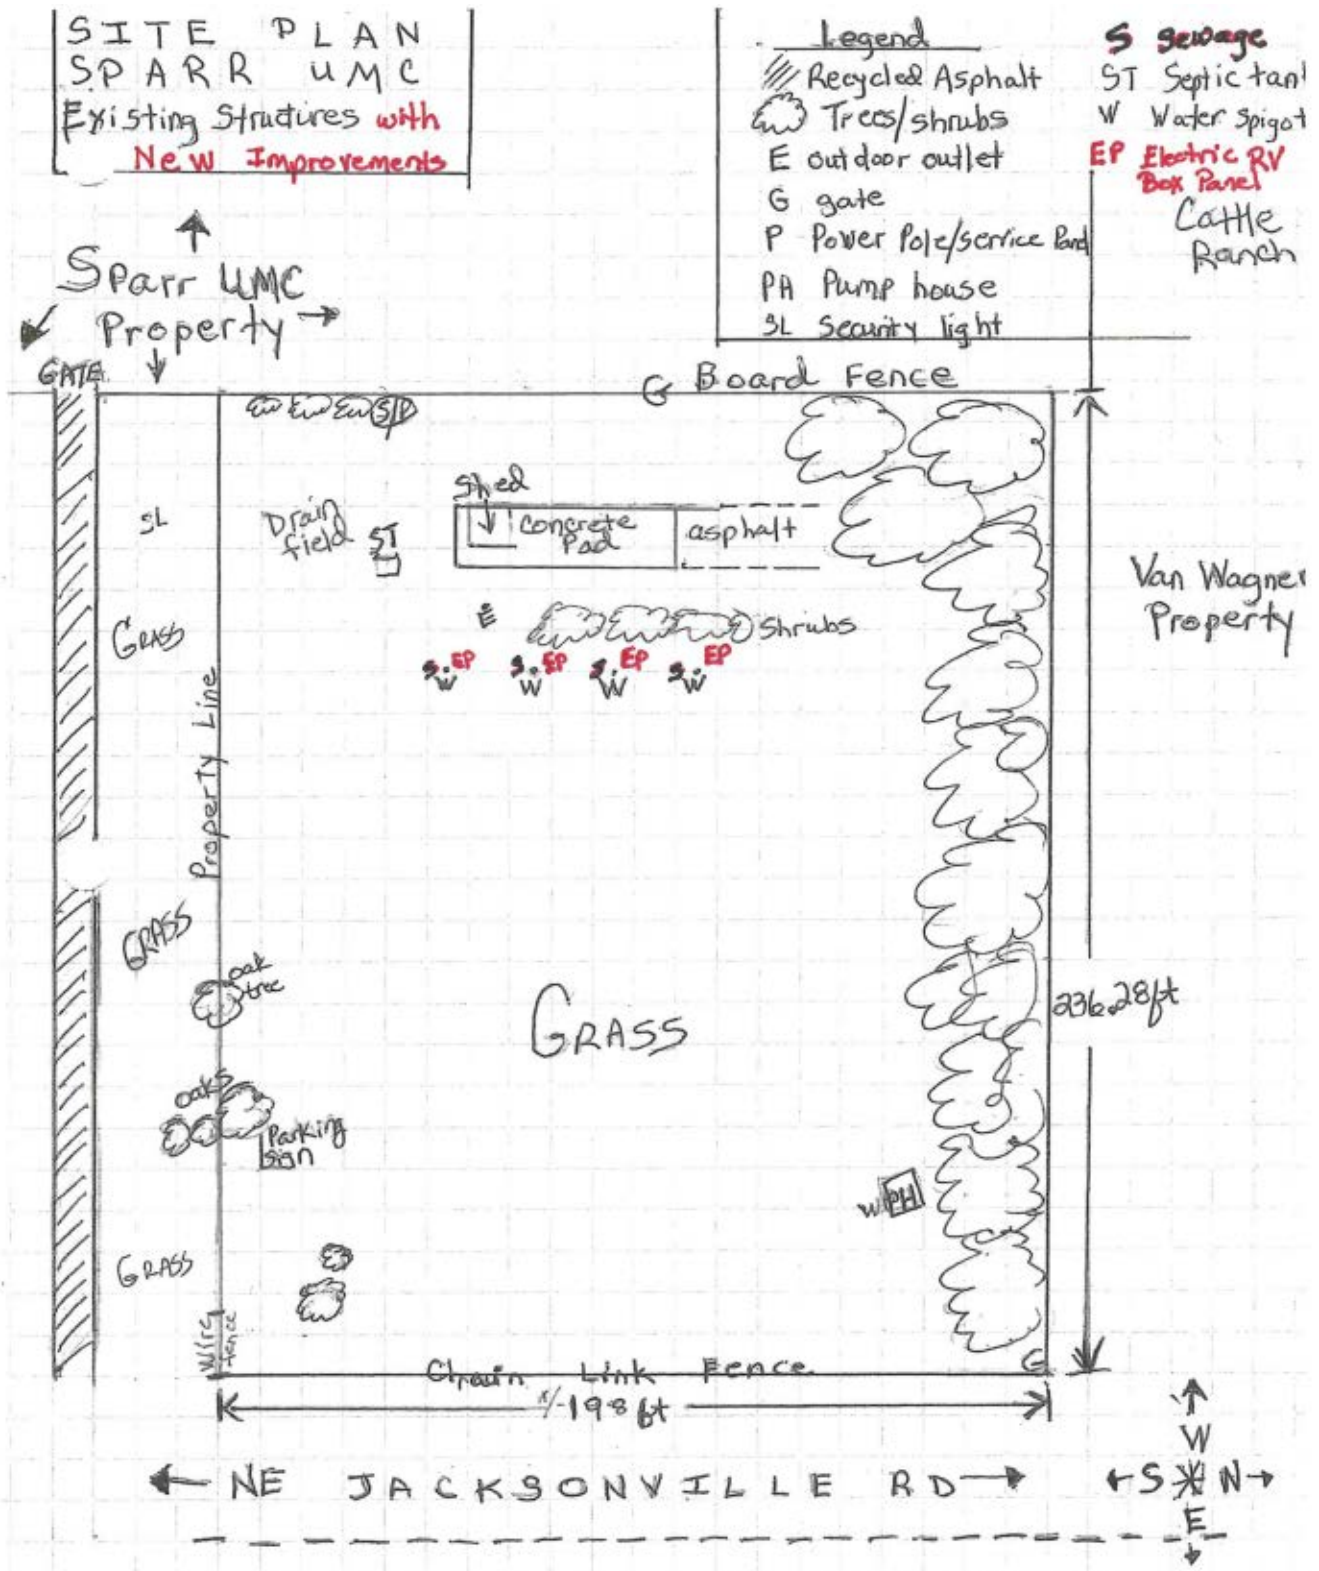 SITE PLAN
SPARR UMC
Existing Structures with
New Improvements
Legend
Recycled Asphalt
Trees/shrubs
E outdoor outlet
G gate
P Power Pole/service
PH Pump house
SL Security light
S sewage
ST Septic tan
W Water spigot
EP Electric RV
Box Panel
Cattle
Ranch
Sparr UMC
Property
GATE
G Board Fence
S/P
SL
Drain
field
ST
Shed
Concrete
Pad
asphalt
Van Wagner
Property
GRASS
E
Shrubs
S EP S EP S EP S EP
W W W W
Property Line
GRASS
oak
tree
GRASS
236.28ft
oaks
Parking
sign
W PH
GRASS
Wire
fence
G
Chain Link Fence
+/-198 ft
NE JACKSONVILLE RD
W
S N
E